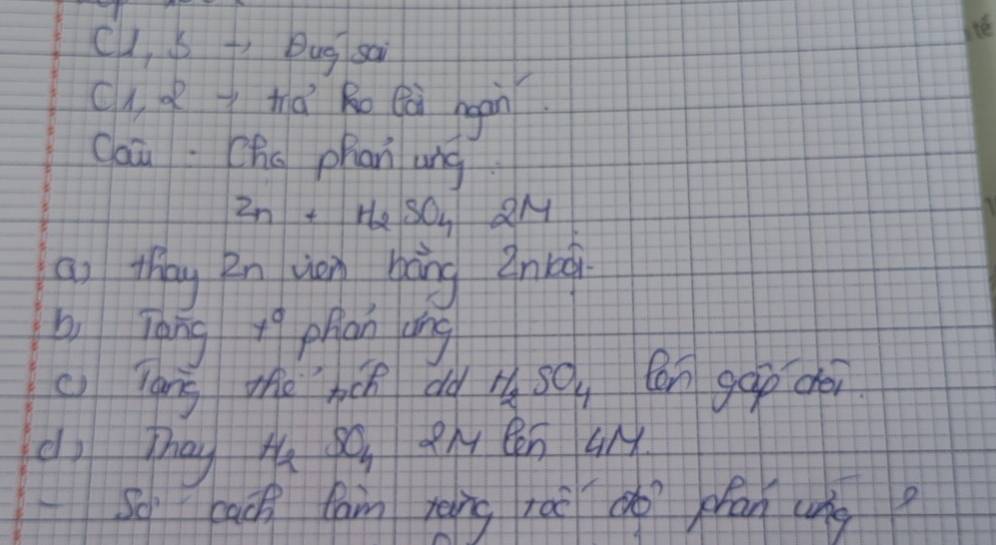 C1, 3 → Đug sai
C1, 2 → trả lời ngắn.
Câu. Cho phản ứng
Zn + H₂SO₄ 2M
a) thay Zn viên bằng Zn bột.
b) Tăng t° phản ứng
c) Tăng thể tích dd H₂SO₄ lên gấp đôi.
d) Thay H₂SO₄ 2M lên 4M.
- Số cách làm tăng tốc độ phản ứng?